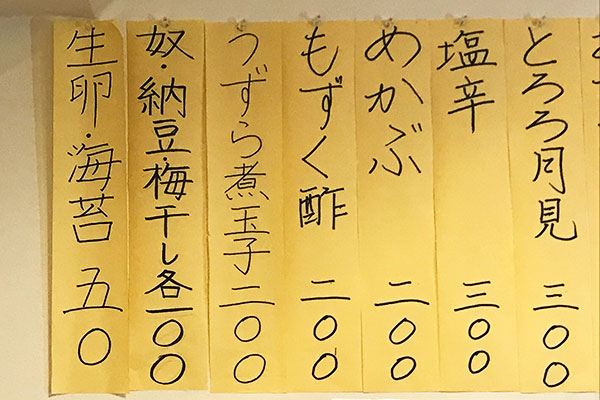 とろろ月見 三〇〇
塩辛 三〇〇
めかぶ 二〇〇
もずく酢 二〇〇
うずら煮玉子 二〇〇
奴・納豆・梅干し各一〇〇
生卵・海苔 五〇